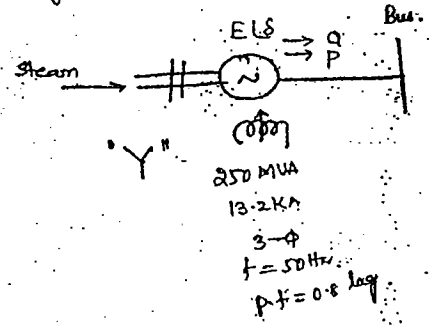 Bus.
E∠δ → Q
→ P
Steam
~
"Y"
250 MVA
13.2KA
3-ϕ
f = 50Hz.
p.f = 0.8 lag.